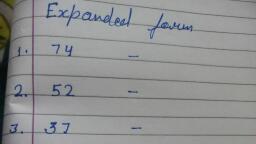 Expanded form
1. 74 -
2. 52 -
3. 37 -